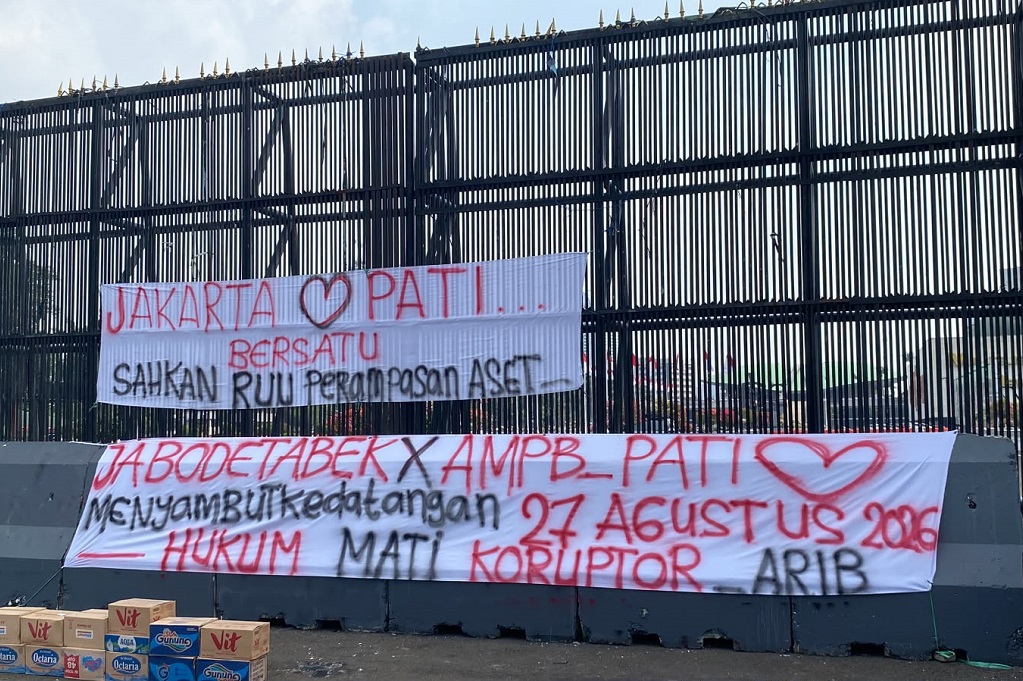 JAKARTA PATI...
BERSATU
SAHKAN RUU Perampasan ASET
JABODETABEK X AMPB_PATI
MENYAMBUT Kedatangan 27 AGUSTUS 2026
HUKUM MATI KORUPTOR _ARIB
Vit
Vit
AQUA
Gunung
Vit
Octaria
Octaria
Octaria
Gunung